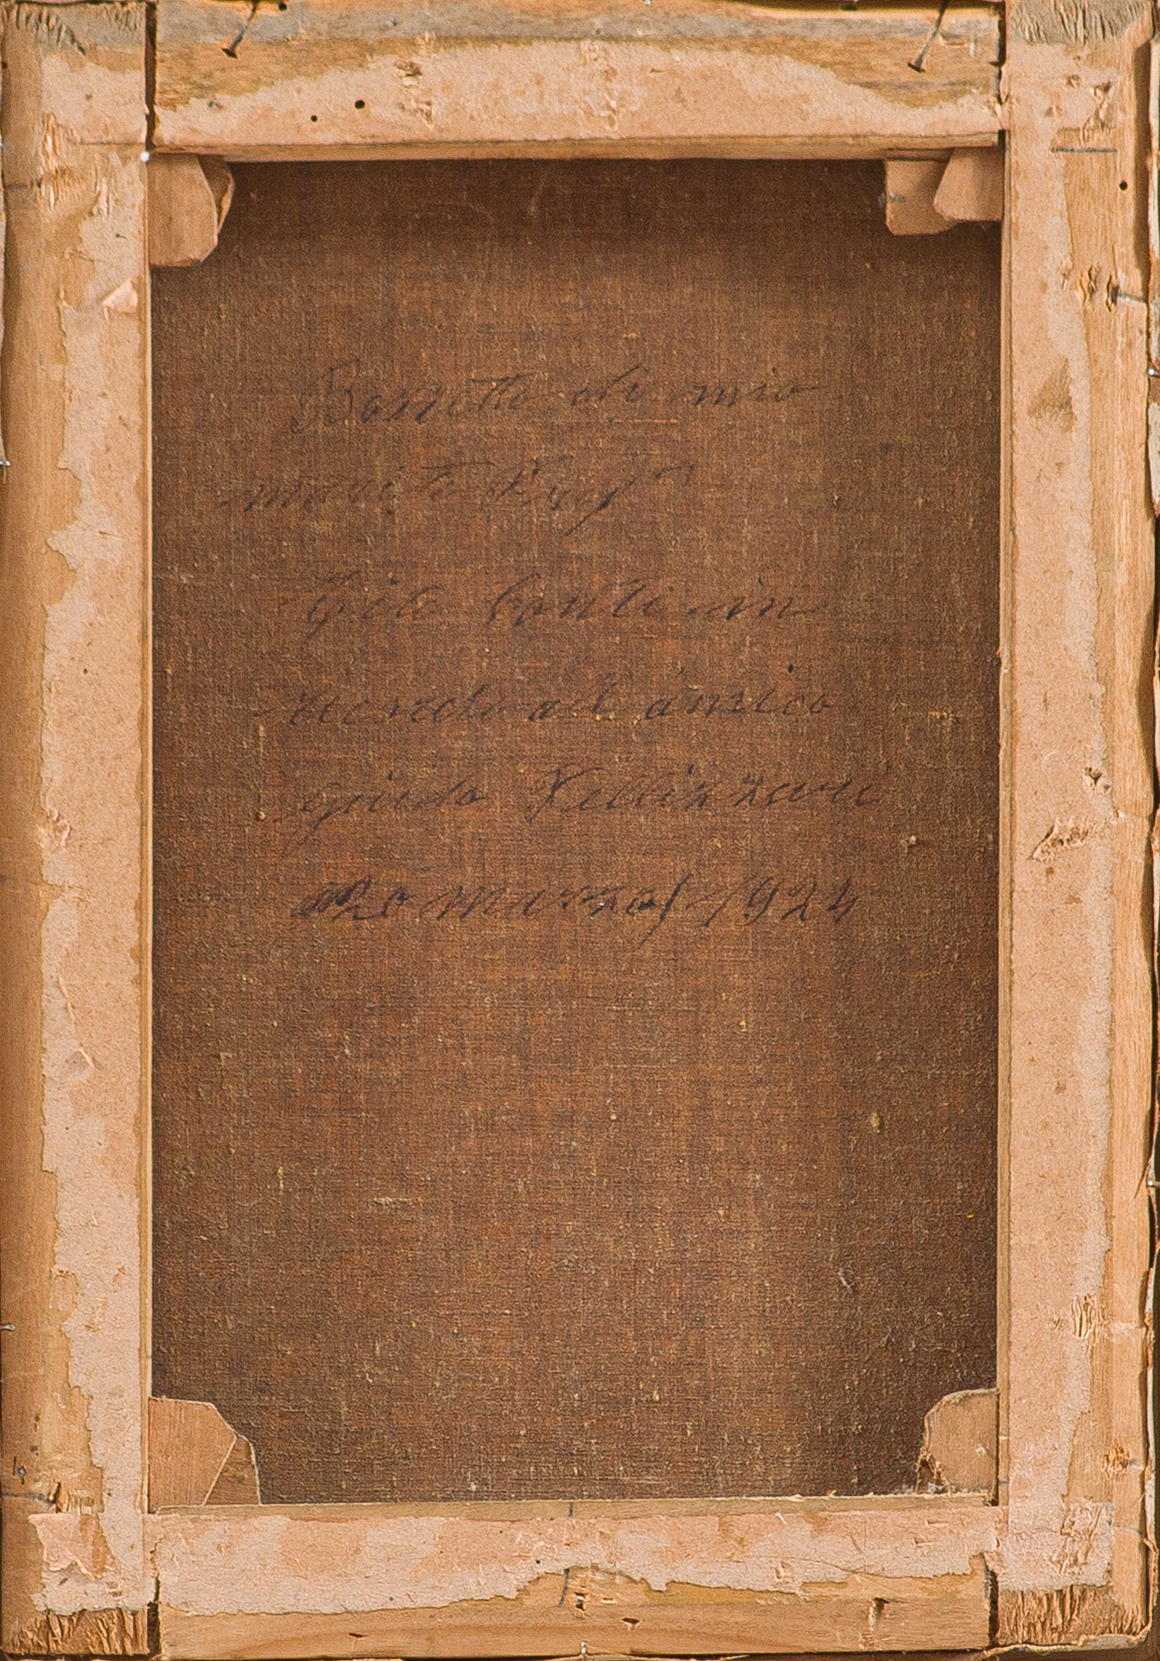 Bozzetto di mio
marito Prof.
Gio Conti in
ricordo all amico
guido
20 marzo 1924